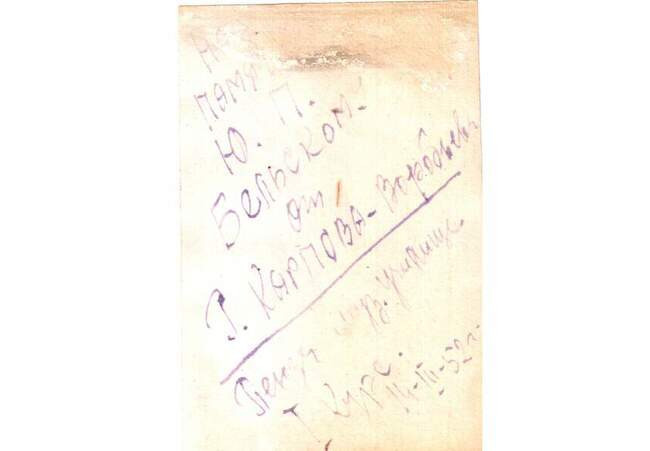 На
память
Ю. П.
Бельскому
от
Г. Карпова-Воробьева
Пенза муз. училище
I курс.
14-III-52г.